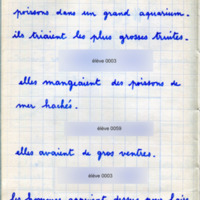 poissons dans un grand aquarium.
ils triaient les plus grosses truites.
élève 0003
elles mangeaient des poissons de
mer hachés.
élève 0009
elles avaient de gros ventres.
élève 0003
les femmes